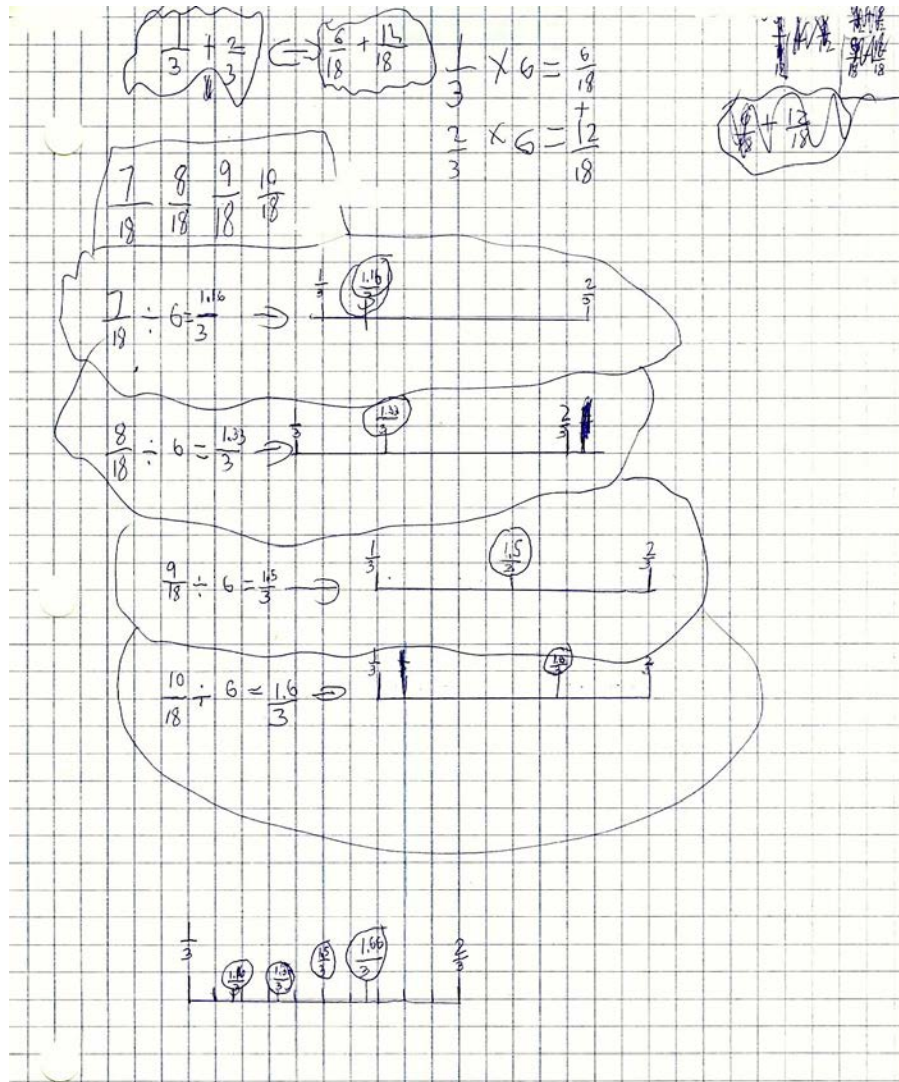 1/3 + 2/3 ⟺ 6/18 + 12/18
1/3 × 6 = 6/18
+
2/3 × 6 = 12/18
6/18 + 12/18
7/18 8/18 9/18 10/18
7/18 ÷ 6 = 1.16/3 ⇒ 1/3 1.16/3 2/3
8/18 ÷ 6 = 1.33/3 ⇒ 1/3 1.33/3 2/3
9/18 ÷ 6 = 1.5/3 ⇒ 1/3 1.5/3 2/3
10/18 ÷ 6 = 1.6/3 ⇒ 1/3 1.6/3 2/3
1/3 1.16/3 1.33/3 1.5/3 1.66/3 2/3